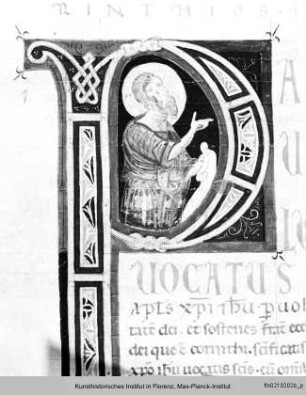 RINTHIOS
P A
U
L
UOCATUS
APLS xp̄i ihū p uol
tatē dei. et sostenes frat̄ ecc
dei que ē corinthi. scīficatis
xp̄o ihū uocatis scīs. cū om̄ib
Kunsthistorisches Institut in Florenz, Max-Planck-Institut
fln0210302b_p